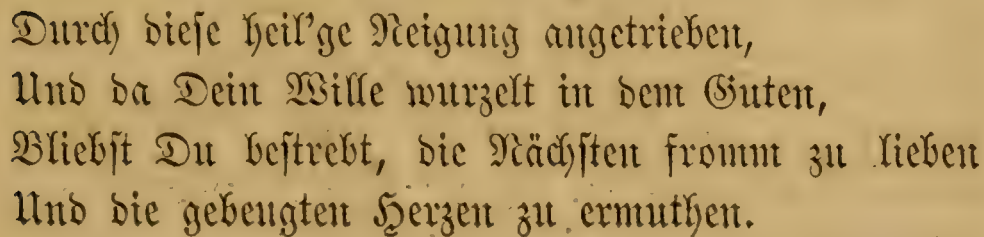 Durch dieſe heil’ge Neigung angetrieben,
Und da Dein Wille wurzelt in dem Guten,
Bliebſt Du beſtrebt, die Nächſten fromm zu lieben
Und die gebeugten Herzen zu ermuthen.